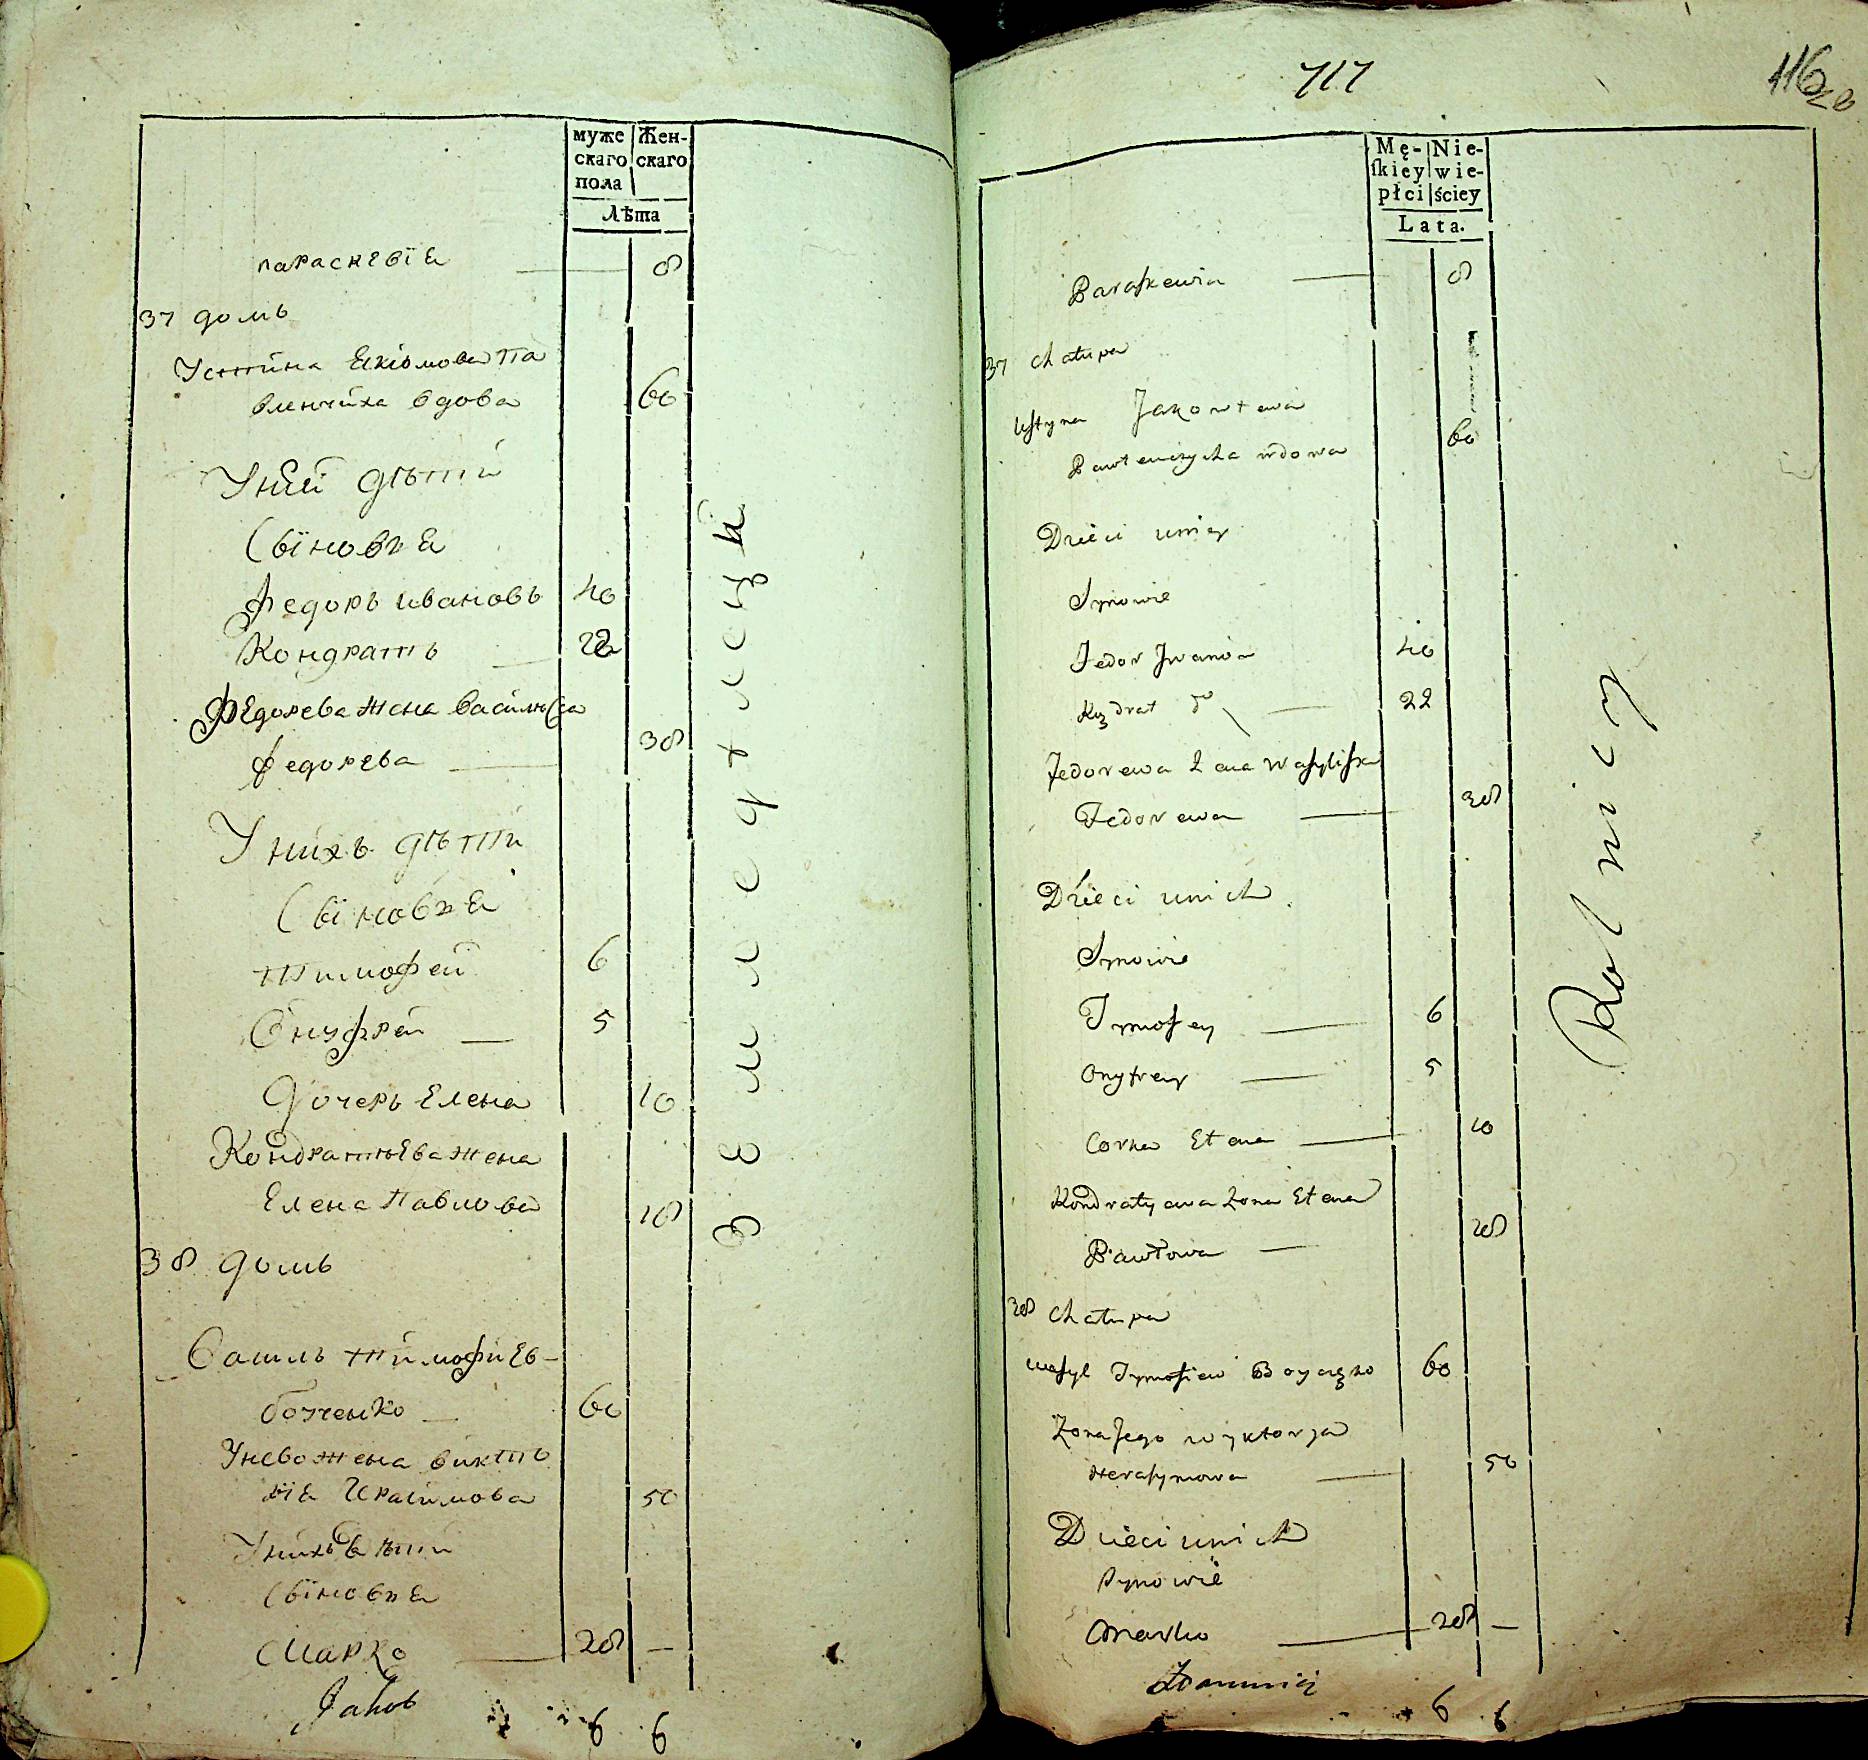 муже Жен-
скаго скаго
пола
Лѣта
параскевїя 8
37 домъ
Устина Екимова Па
вленчиха вдова 60
У ней дѣти
Сыновья
Федоръ Ивановъ 40
Кондратъ 22
Федорева жена Василиса
Федорева 38
У нихъ дѣти
Сыновья
Тимофей 6
Онуфрей 5
Дочерь Елена 10
Кондратьева жена
Елена Павлова 18
38 домъ
Василь Тимофиев-
бойченко 60
У него жена викто
рїя Ирасимова 50
У нихъ дѣти
Сыновья
Марко 28 —
Jakob
6 6
Земледѣлецы
717
116
Mę- Nie-
skiey wie-
płci ściey
Lata.
Paraskewia 8
37 Chałupa
Ustyna Jakowłewa
Pawłenczycha wdowa 60
Dzieci u niey
Synowie
Fedor Iwanow 40
Kądrat 22
Fedorewa Żona Wasyliska
Fedorewa 38
Dzieci u nich
Synowie
Tymofey 6
Onyfrey 5
Corka Ełena 10
Kondratyewa Żona Ełena
Pawłowa 28
38 Chałupa
Wasyl Tymofiew Boyczęko 60
Żona Jego Wyktorya
Herasymowa 50
Dzieci u nich
Synowie
Marko 28 —
6 6
Rolnicy